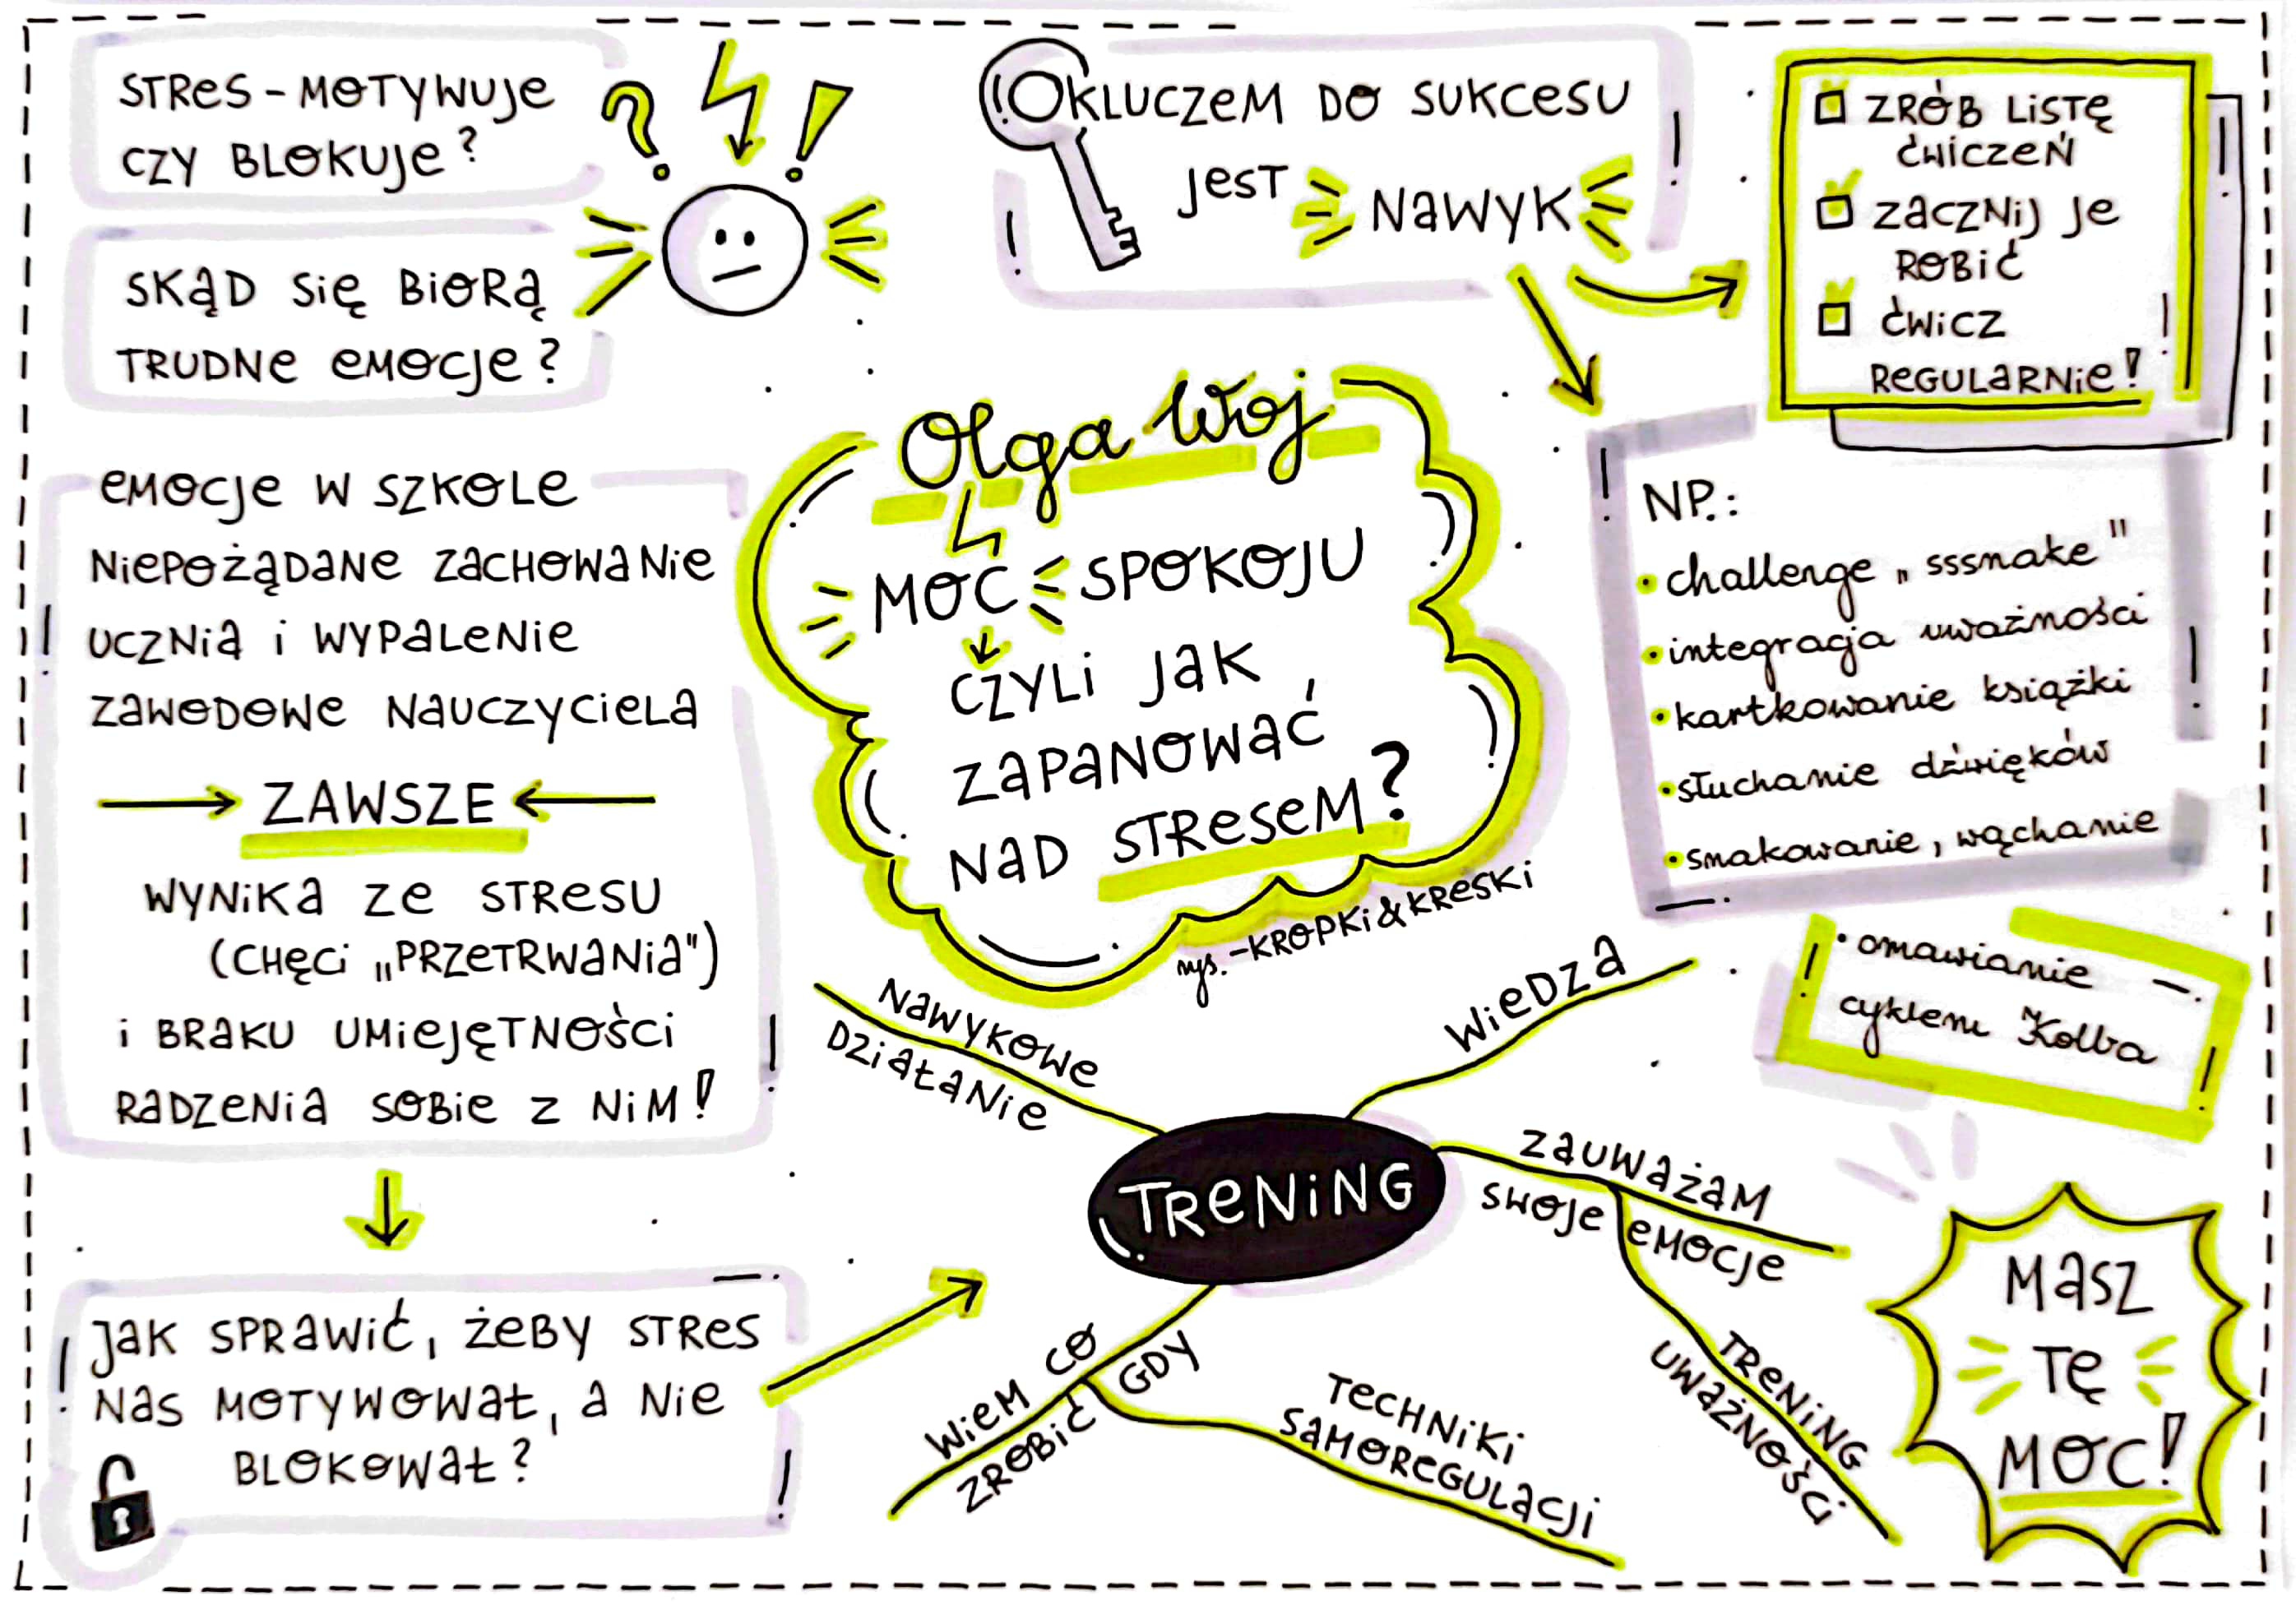 STRES - MOTYWUJE
CZY BLOKUJE?
SKĄD SIĘ BIORĄ
TRUDNE EMOCJE?
EMOCJE W SZKOLE
NIEPOŻĄDANE ZACHOWANIE
UCZNIA I WYPALENIE
ZAWODOWE NAUCZYCIELA
ZAWSZE
WYNIKA ZE STRESU
(CHĘCI „PRZETRWANIA")
I BRAKU UMIEJĘTNOŚCI
RADZENIA SOBIE Z NIM!
JAK SPRAWIĆ, ŻEBY STRES
NAS MOTYWOWAŁ, A NIE
BLOKOWAŁ?
KLUCZEM DO SUKCESU
JEST NAWYK
ZRÓB LISTĘ
ĆWICZEŃ
ZACZNIJ JE
ROBIĆ
ĆWICZ
REGULARNIE!
Olga Wój
MOC SPOKOJU
CZYLI JAK
ZAPANOWAĆ
NAD STRESEM?
rys. - KROPKI & KRESKI
NP.:
• challenge „sssnake"
• integracja uważności
• kartkowanie książki
• słuchanie dźwięków
• smakowanie, wąchanie
• omawianie
cyklem Kolba
TRENING
NAWYKOWE
DZIAŁANIE
WIEDZA
ZAUWAŻAM
SWOJE EMOCJE
TRENING
UWAŻNOŚCI
WIEM CO
ZROBIĆ GDY
TECHNIKI
SAMOREGULACJI
MASZ
TĘ
MOC!